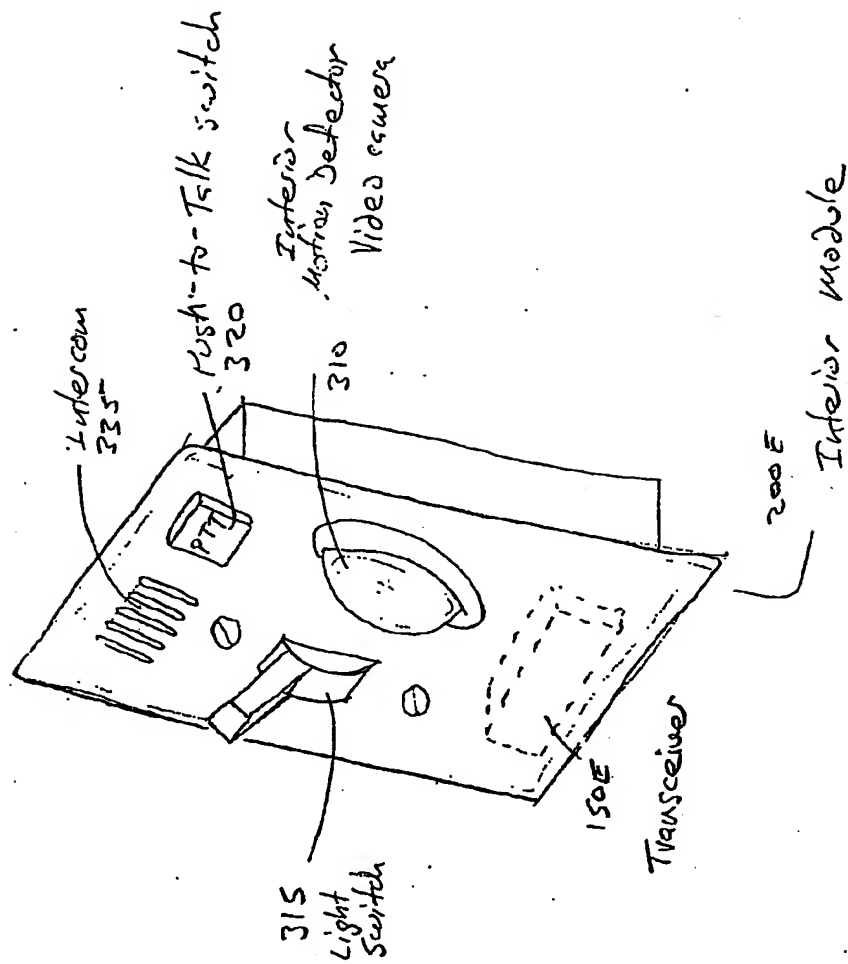 Intercom
335
Push-to-Talk switch
320
PTT
Interior
Motion Detector
Video camera
310
315
Light
Switch
150E
Transceiver
200E
Interior Module